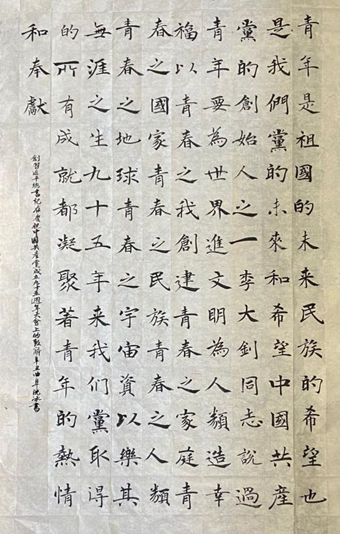 青年是祖國的未来民族的希望也
是我們黨的未來和希望中國共產
黨的創始人之一李大釗同志說過
青年要為世界進文明為人類造幸
福以青春之我創建青春之家庭青
春之國家青春之民族青春之人類
青春之地球青春之宇宙資以樂其
無涯之生九十五年来我们黨取得
的所有成就都凝聚著青年的熱情
和奉獻
習近平總書記在慶祝中國共產黨成立九十五週年大會上的